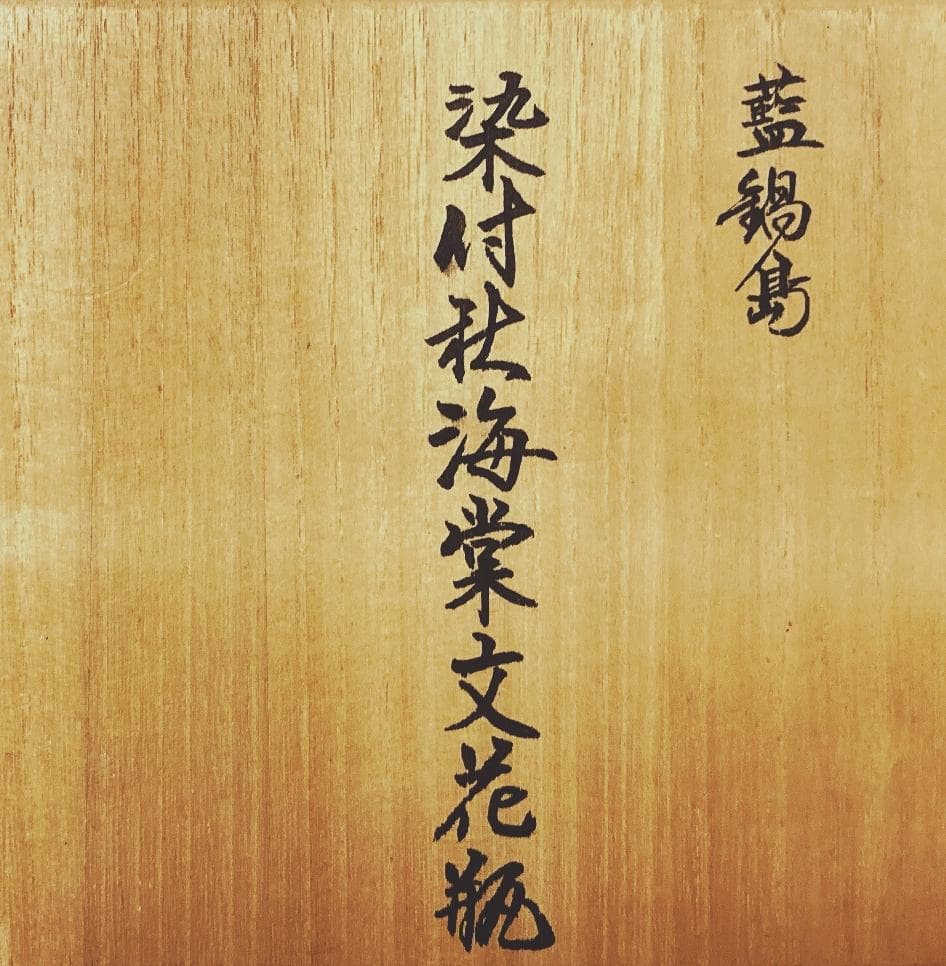 藍鍋島
染付秋海棠文花瓶